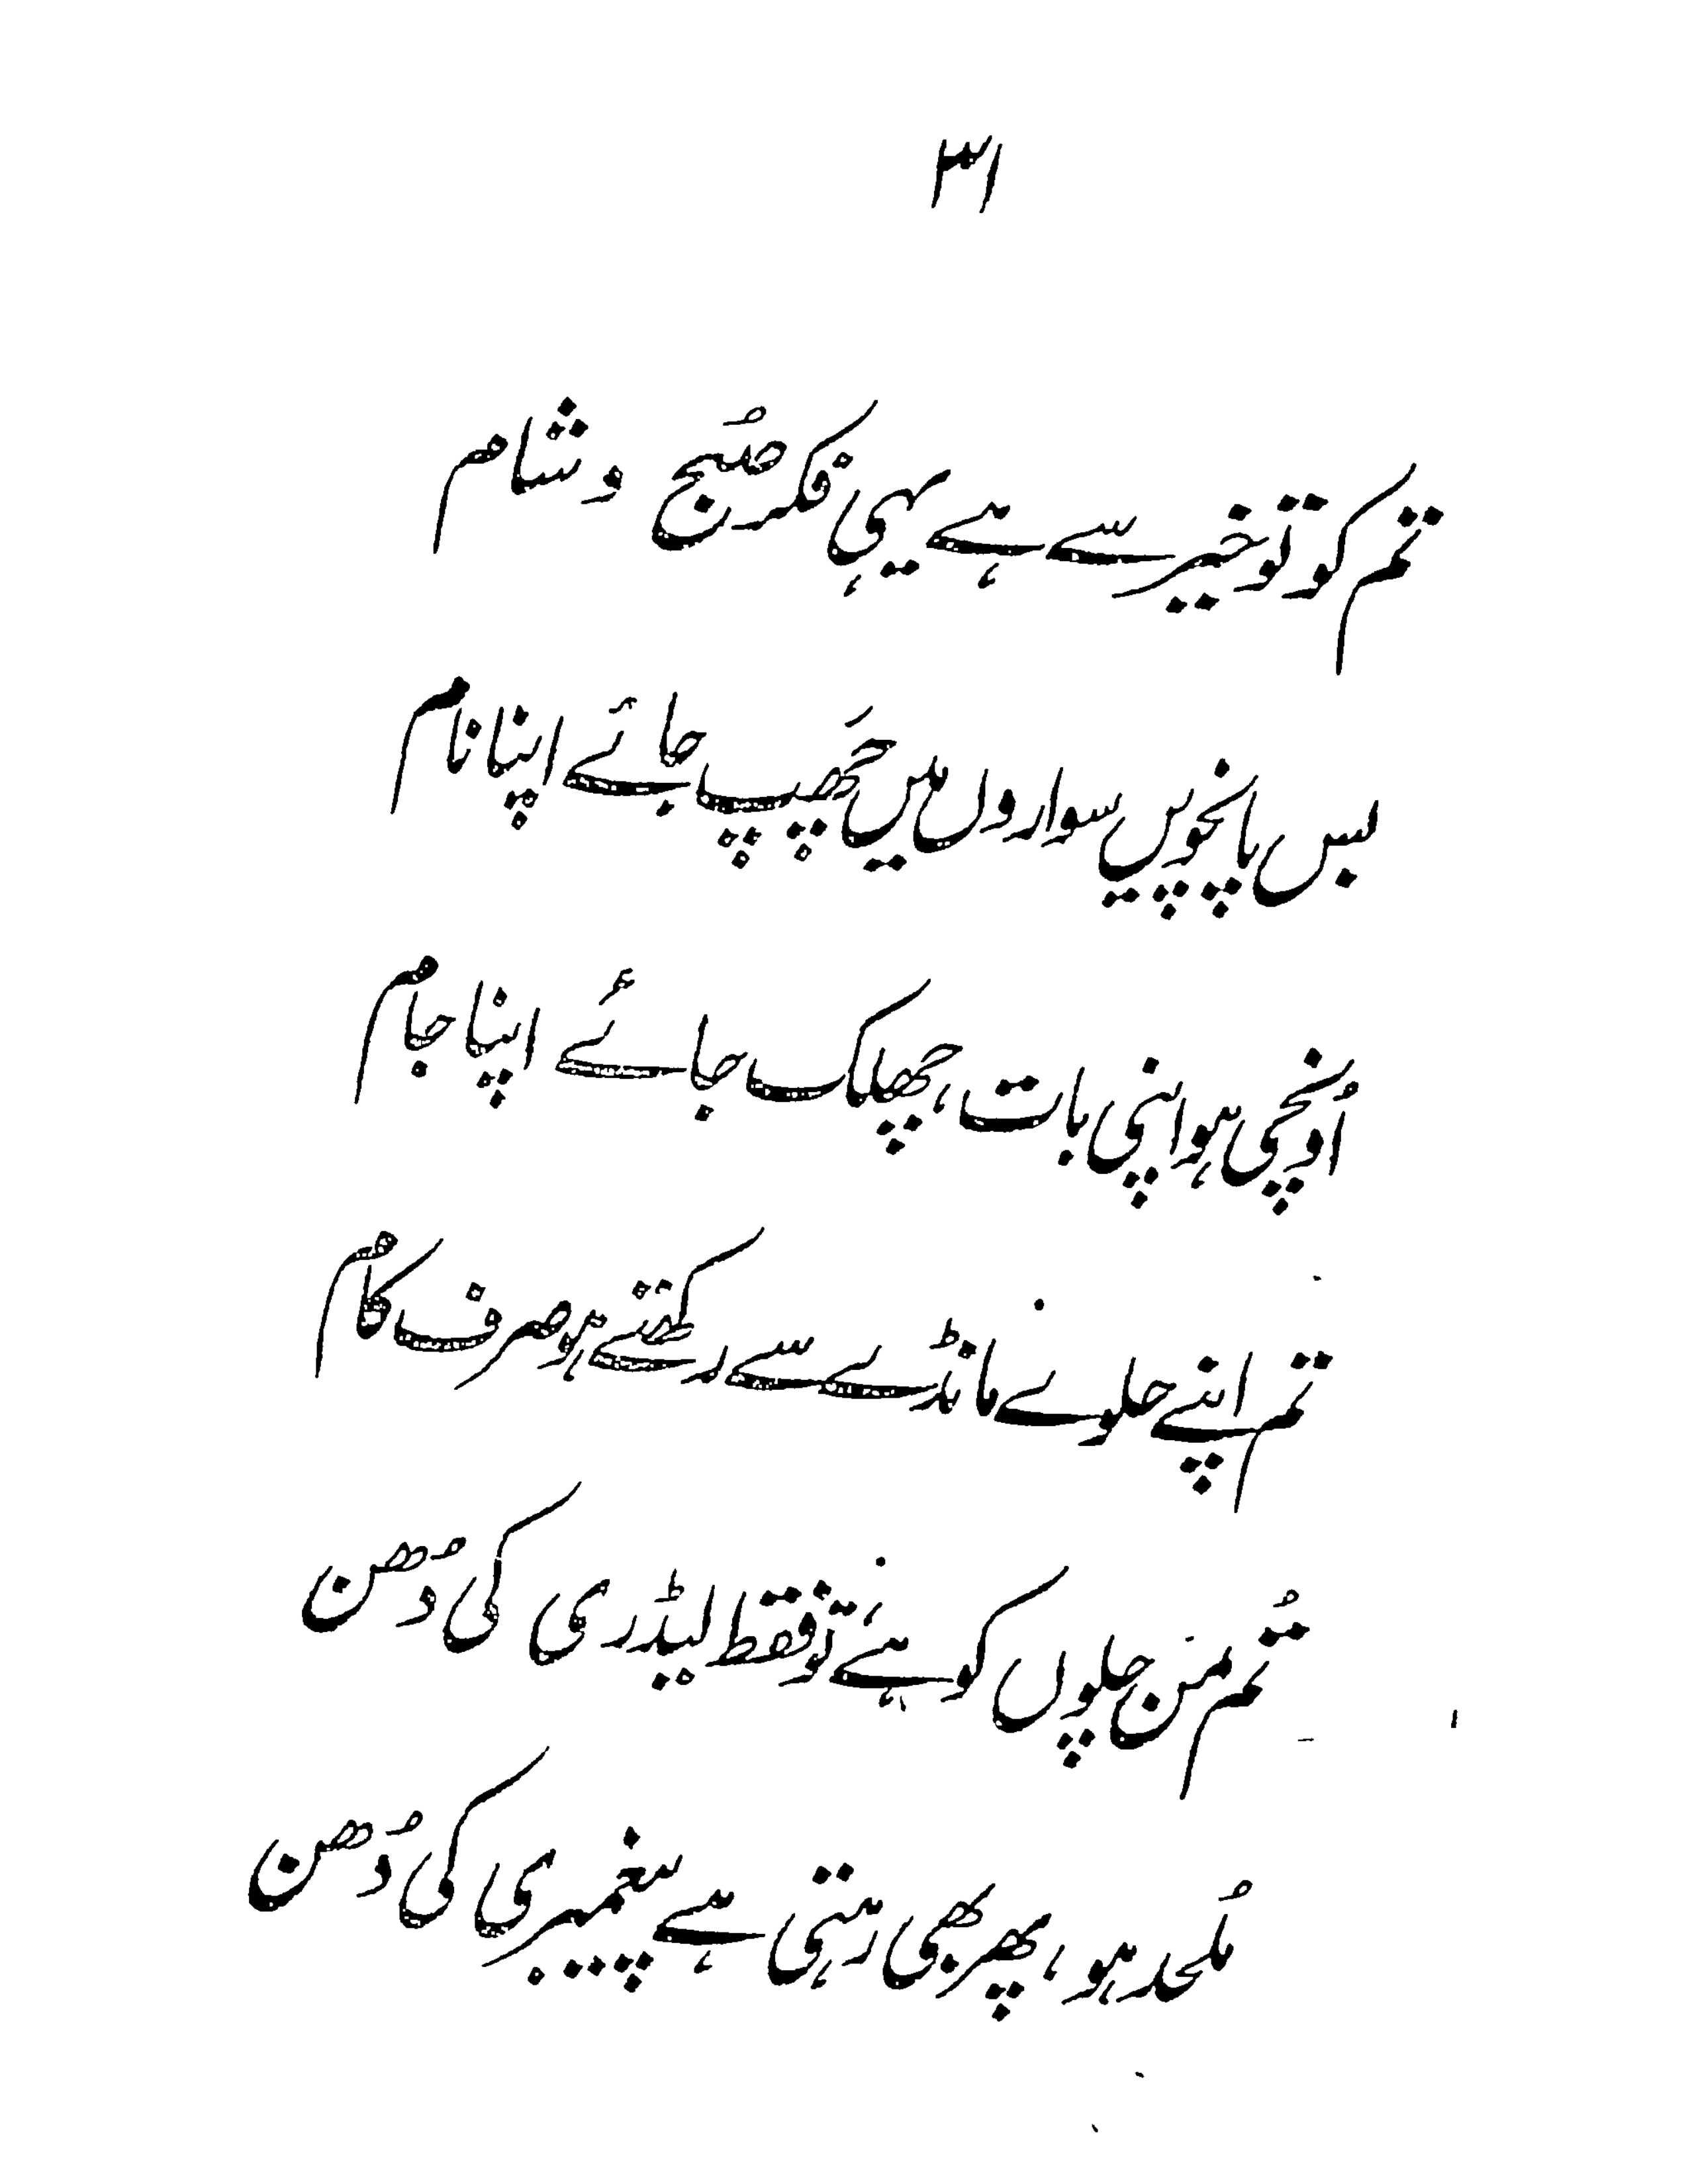 ۳۱
تم کو تو خیر سے ہے یہی فکر صُبح و شام
بس پانچویں سواروں میں چھَپ جائے اپنا نام
اُونچی ہو اپنی بات، چھلک جائے اپنا جام
تم اپنے حلوے مانڈے سے رکھتے ہو صرف کام
تُم مَن چلوں کو ہے تو فقط لیڈری کی دُھن
مُلحد ہو، پھر بھی رہتی ہے پیغمبری کی دُھن